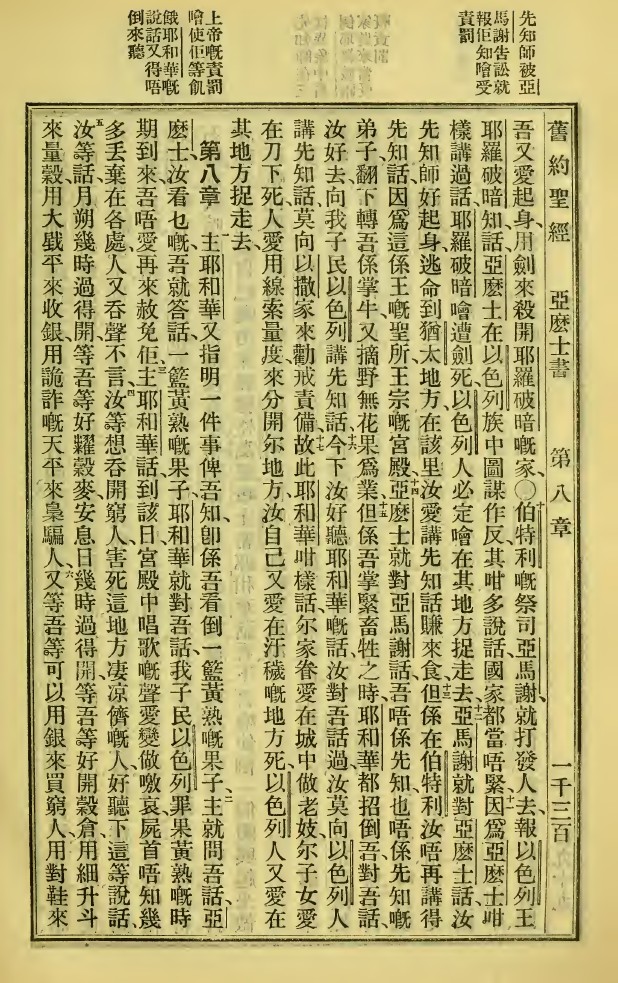 先知師被亞
馬謝告訟就
報佢知噲受
責罰
上帝嘅責罰
噲使佢等飢
餓耶和華嘅
說話又得唔
倒來聽
舊約聖經 亞麽士書 第八章 一千三百
吾又愛起身、用劍來殺開耶羅破暗嘅家、○十伯特利嘅祭司亞馬謝、就打發人去報以色列王
耶羅破暗知話、亞麽士在以色列族中圖謀作反、其咁多說話、國家都當唔緊、十一因爲亞麽士咁
樣講過話、耶羅破暗噲遭劍死、以色列人必定噲在其地方捉走去、十二亞馬謝就對亞麽士話、汝
先知師好起身、逃命到猶太地方、在該里汝愛講先知話賺來食、十三但係在伯特利汝唔再講得
先知話、因爲這係王嘅聖所、王宗嘅宮殿、十四亞麽士就對亞馬謝話、吾唔係先知、也唔係先知嘅
弟子、翻下轉吾係掌牛、又摘野無花果爲業、十五但係吾掌緊畜牲之時、耶和華都招倒吾、對吾話、
汝好去向我子民以色列講先知話、十六今下汝好聽耶和華嘅話、汝對吾話過、汝莫向以色列人
講先知話、莫向以撒家來勸戒責備、十七故此耶和華咁樣話、尔家眷愛在城中做老妓、尔子女愛
在刀下死、人愛用線索量度來分開尔地方、汝自己又愛在汙穢嘅地方死、以色列人又愛在
其地方捉走去、
第八章 一主耶和華又指明一件事俾吾知、卽係吾看倒一籃黃熟嘅果子、二主就問吾話、亞
麽士汝看乜嘅、吾就答話、一籃黃熟嘅果子、耶和華就對吾話、我子民以色列罪果黃熟嘅時
期到來、吾唔愛再來赦免佢、三主耶和華話、到該日宮殿中唱歌嘅聲愛變做噭哀、屍首唔知幾
多、丟棄在各處、人又吞聲不言、四汝等想吞開窮人、害死這地方淒凉儕嘅人、好聽下這等說話、
五汝等話、月朔幾時過得開、等吾等好糶穀麥、安息日幾時過得開、等吾等好開穀倉、用細升斗
來量穀、用大戥平來收銀、用詭詐嘅天平來梟騙人、六又等吾等可以用銀來買窮人、用對鞋來